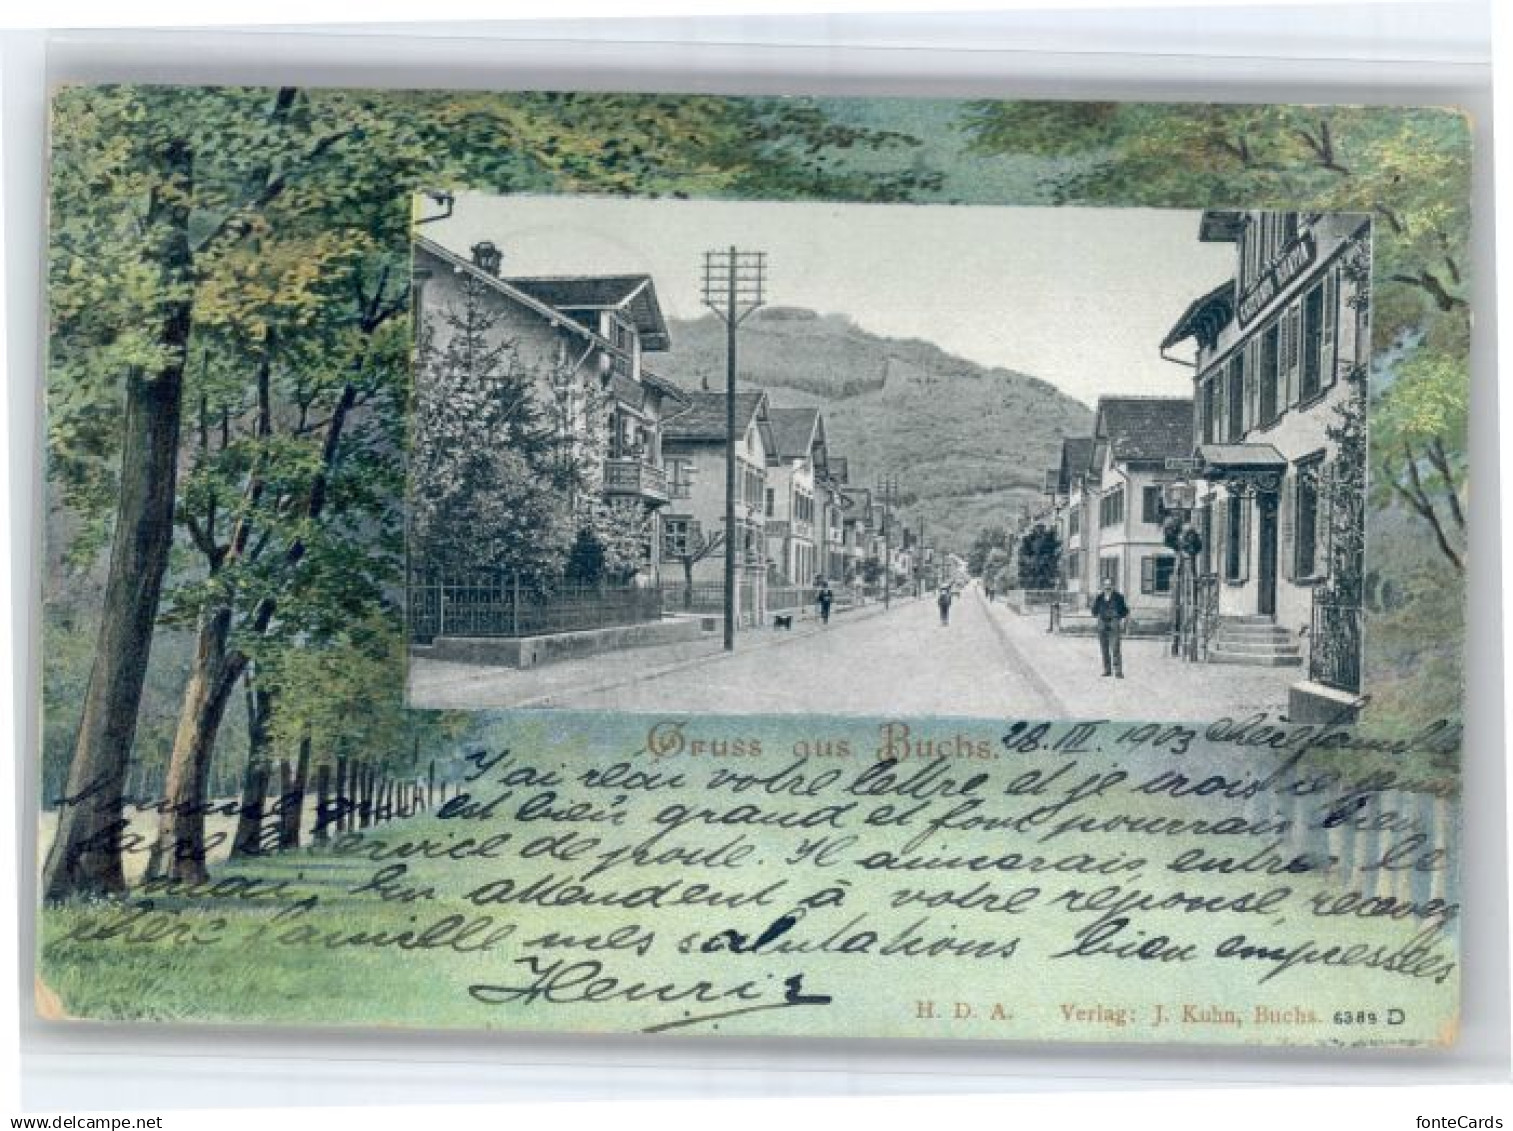 Gruss aus Buchs.
28. III. 1903 chère famille
J'ai reçu votre lettre et je crois
est bien grand et fort pourrais bien
faire le service de poste. Il aimerais entrer le
mai. En attendent à votre réponse, recevez
chère famille mes salutations bien empressées
Henri
H. D. A. Verlag: J. Kuhn, Buchs. 6389 D
fonteCards